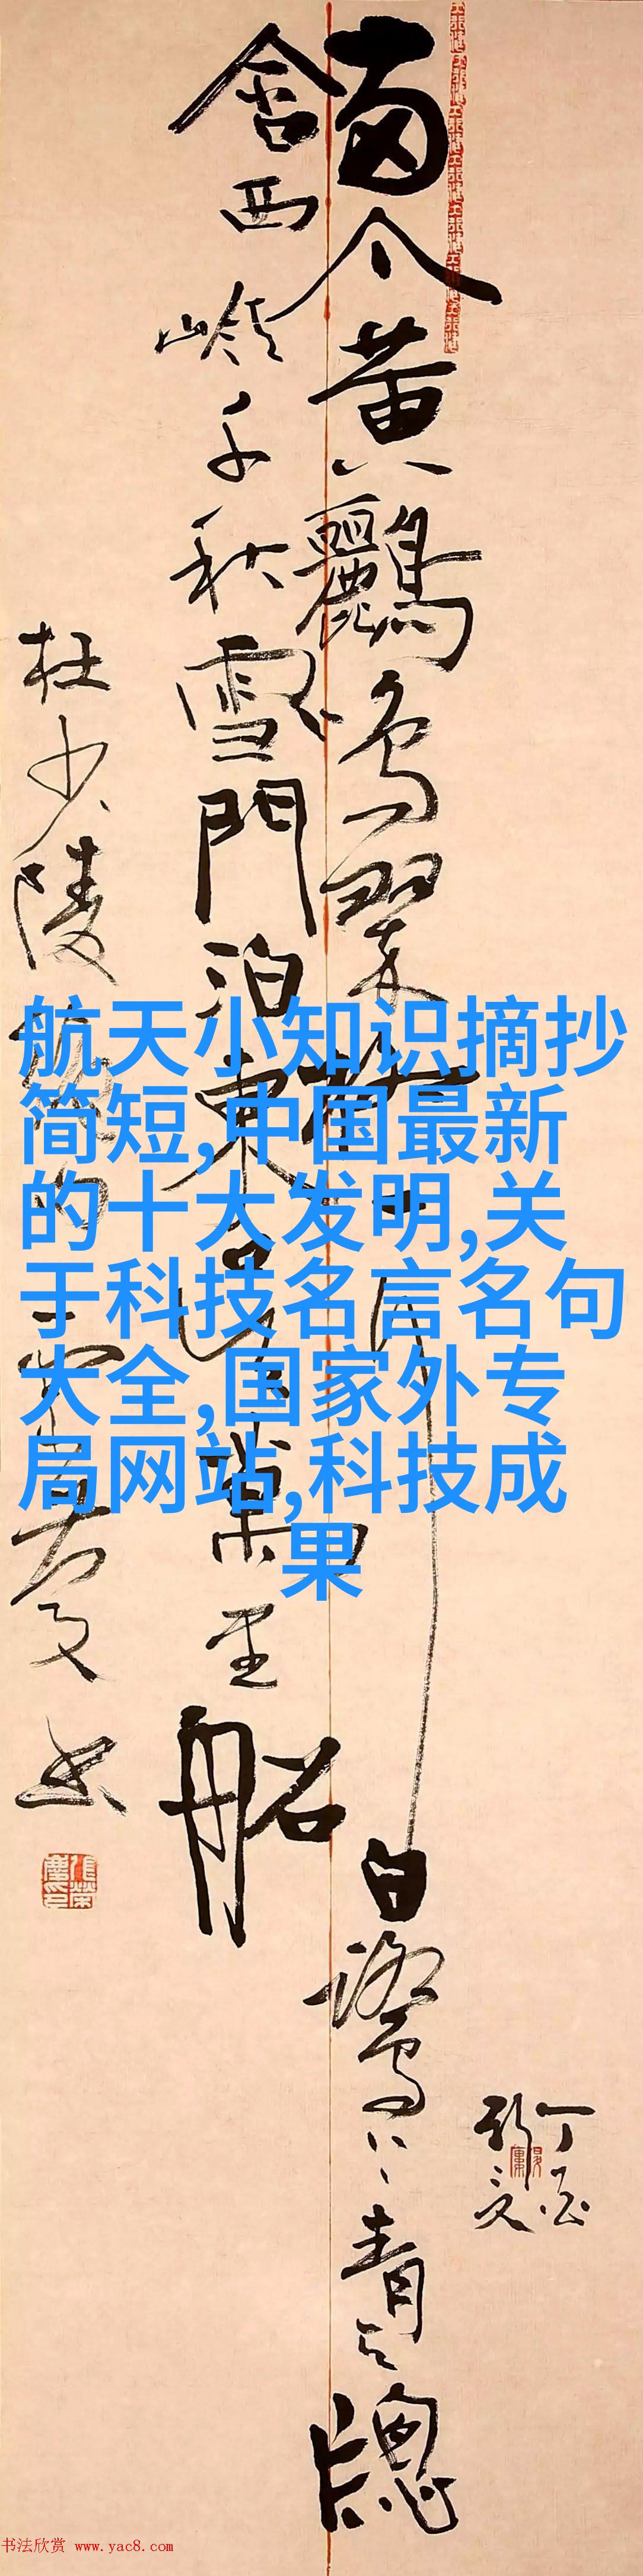 兩个黃鸝鳴翠柳一行白鷺上青天窻
含西嶺千秋雪門泊東吳萬里船
杜少陵
丁酉
航天小知识摘抄
简短,中国最新
的十大发明,关
于科技名言名句
大全,国家外专
局网站,科技成
果
书法欣赏 www.yac8.com